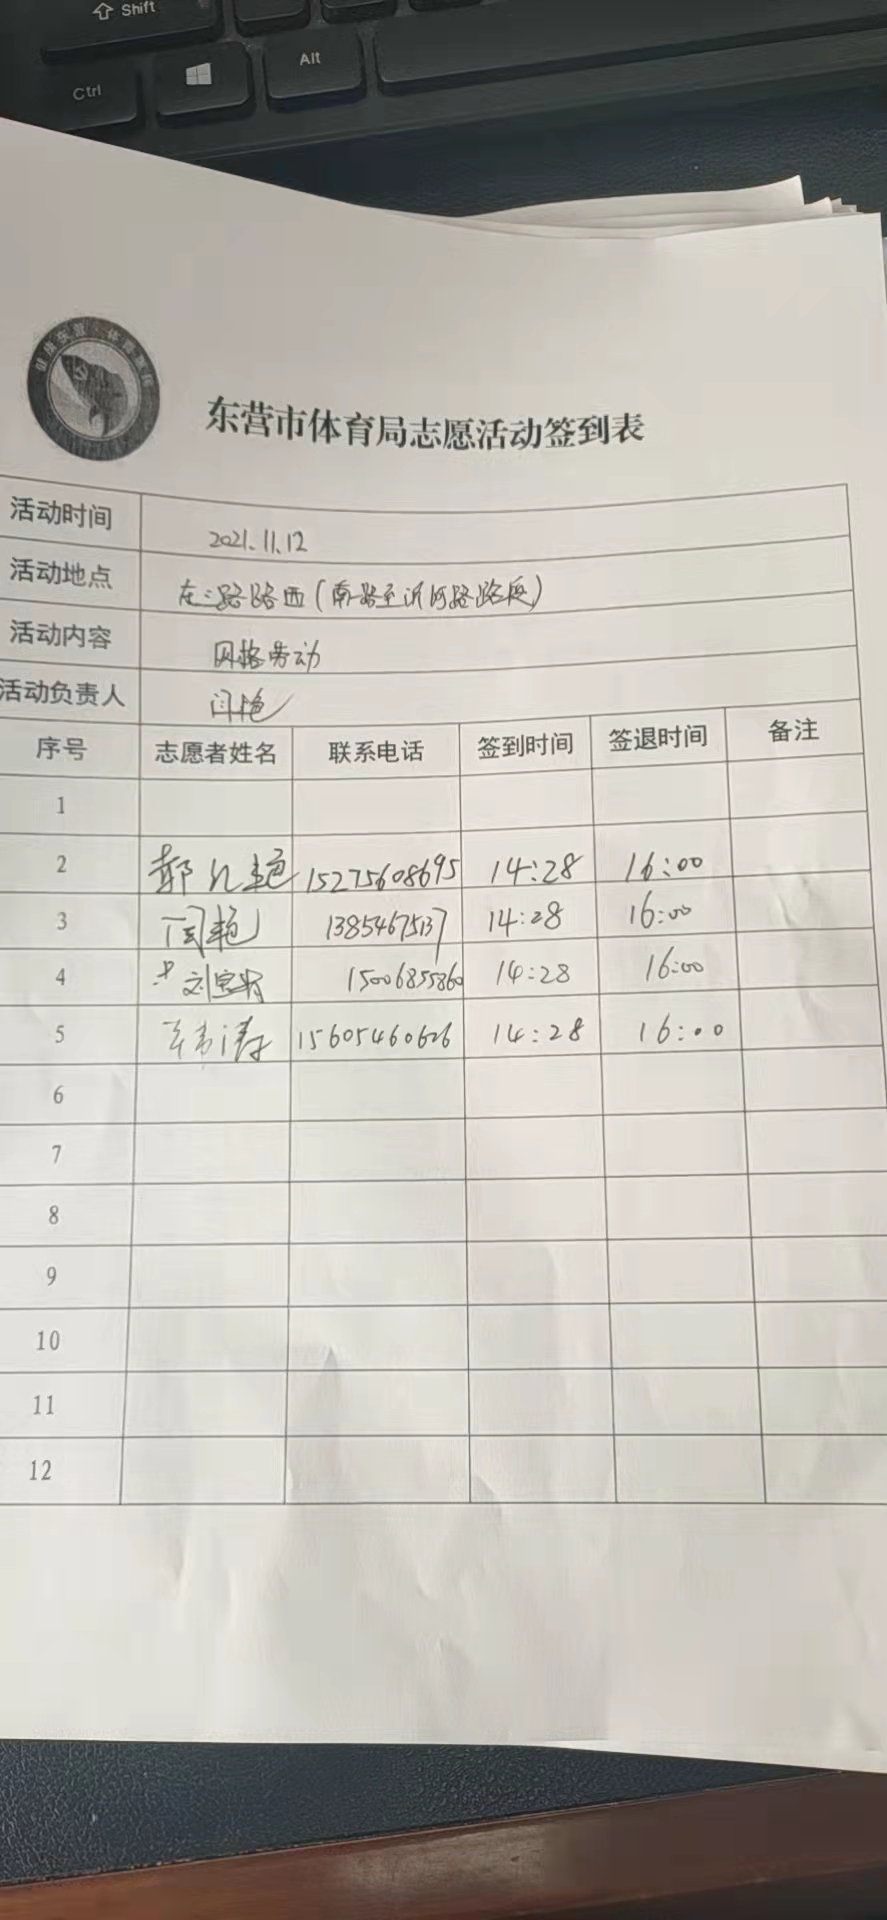 Shift
Ctrl
Alt
东营市体育局志愿活动签到表
活动时间 2021.11.12
活动地点 东二路路西(南路至沂河路路段)
活动内容 网格劳动
活动负责人 闫艳
序号 志愿者姓名 联系电话 签到时间 签退时间 备注
1
2 郭 艳 15275608695 14:28 16:00
3 闫艳 13854675137 14:28 16:00
4 刘宝 15006855860 14:28 16:00
5 涛 15605460626 14:28 16:00
6
7
8
9
10
11
12